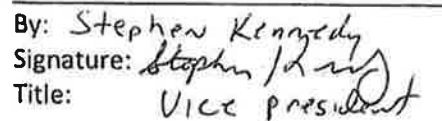 By: Stephen Kennedy
Signature: Stephen
Title: Vice president